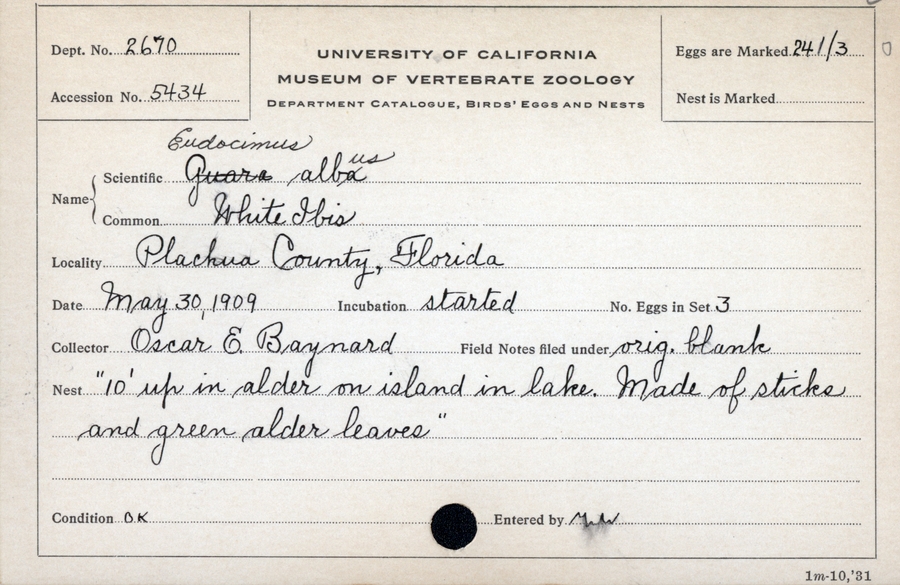 Dept. No. 2670
Accession No. 5434
UNIVERSITY OF CALIFORNIA
MUSEUM OF VERTEBRATE ZOOLOGY
DEPARTMENT CATALOGUE, BIRDS' EGGS AND NESTS
Eggs are Marked 241/3
Nest is Marked
Eudocimus
Name Scientific Guara albaus
Common White Ibis
Locality Plachua County, Florida
Date May 30, 1909 Incubation started No. Eggs in Set 3
Collector Oscar E. Baynard Field Notes filed under orig. blank
Nest "10' up in alder on island in lake. Made of sticks
and green alder leaves"
Condition OK Entered by
1m-10,'31